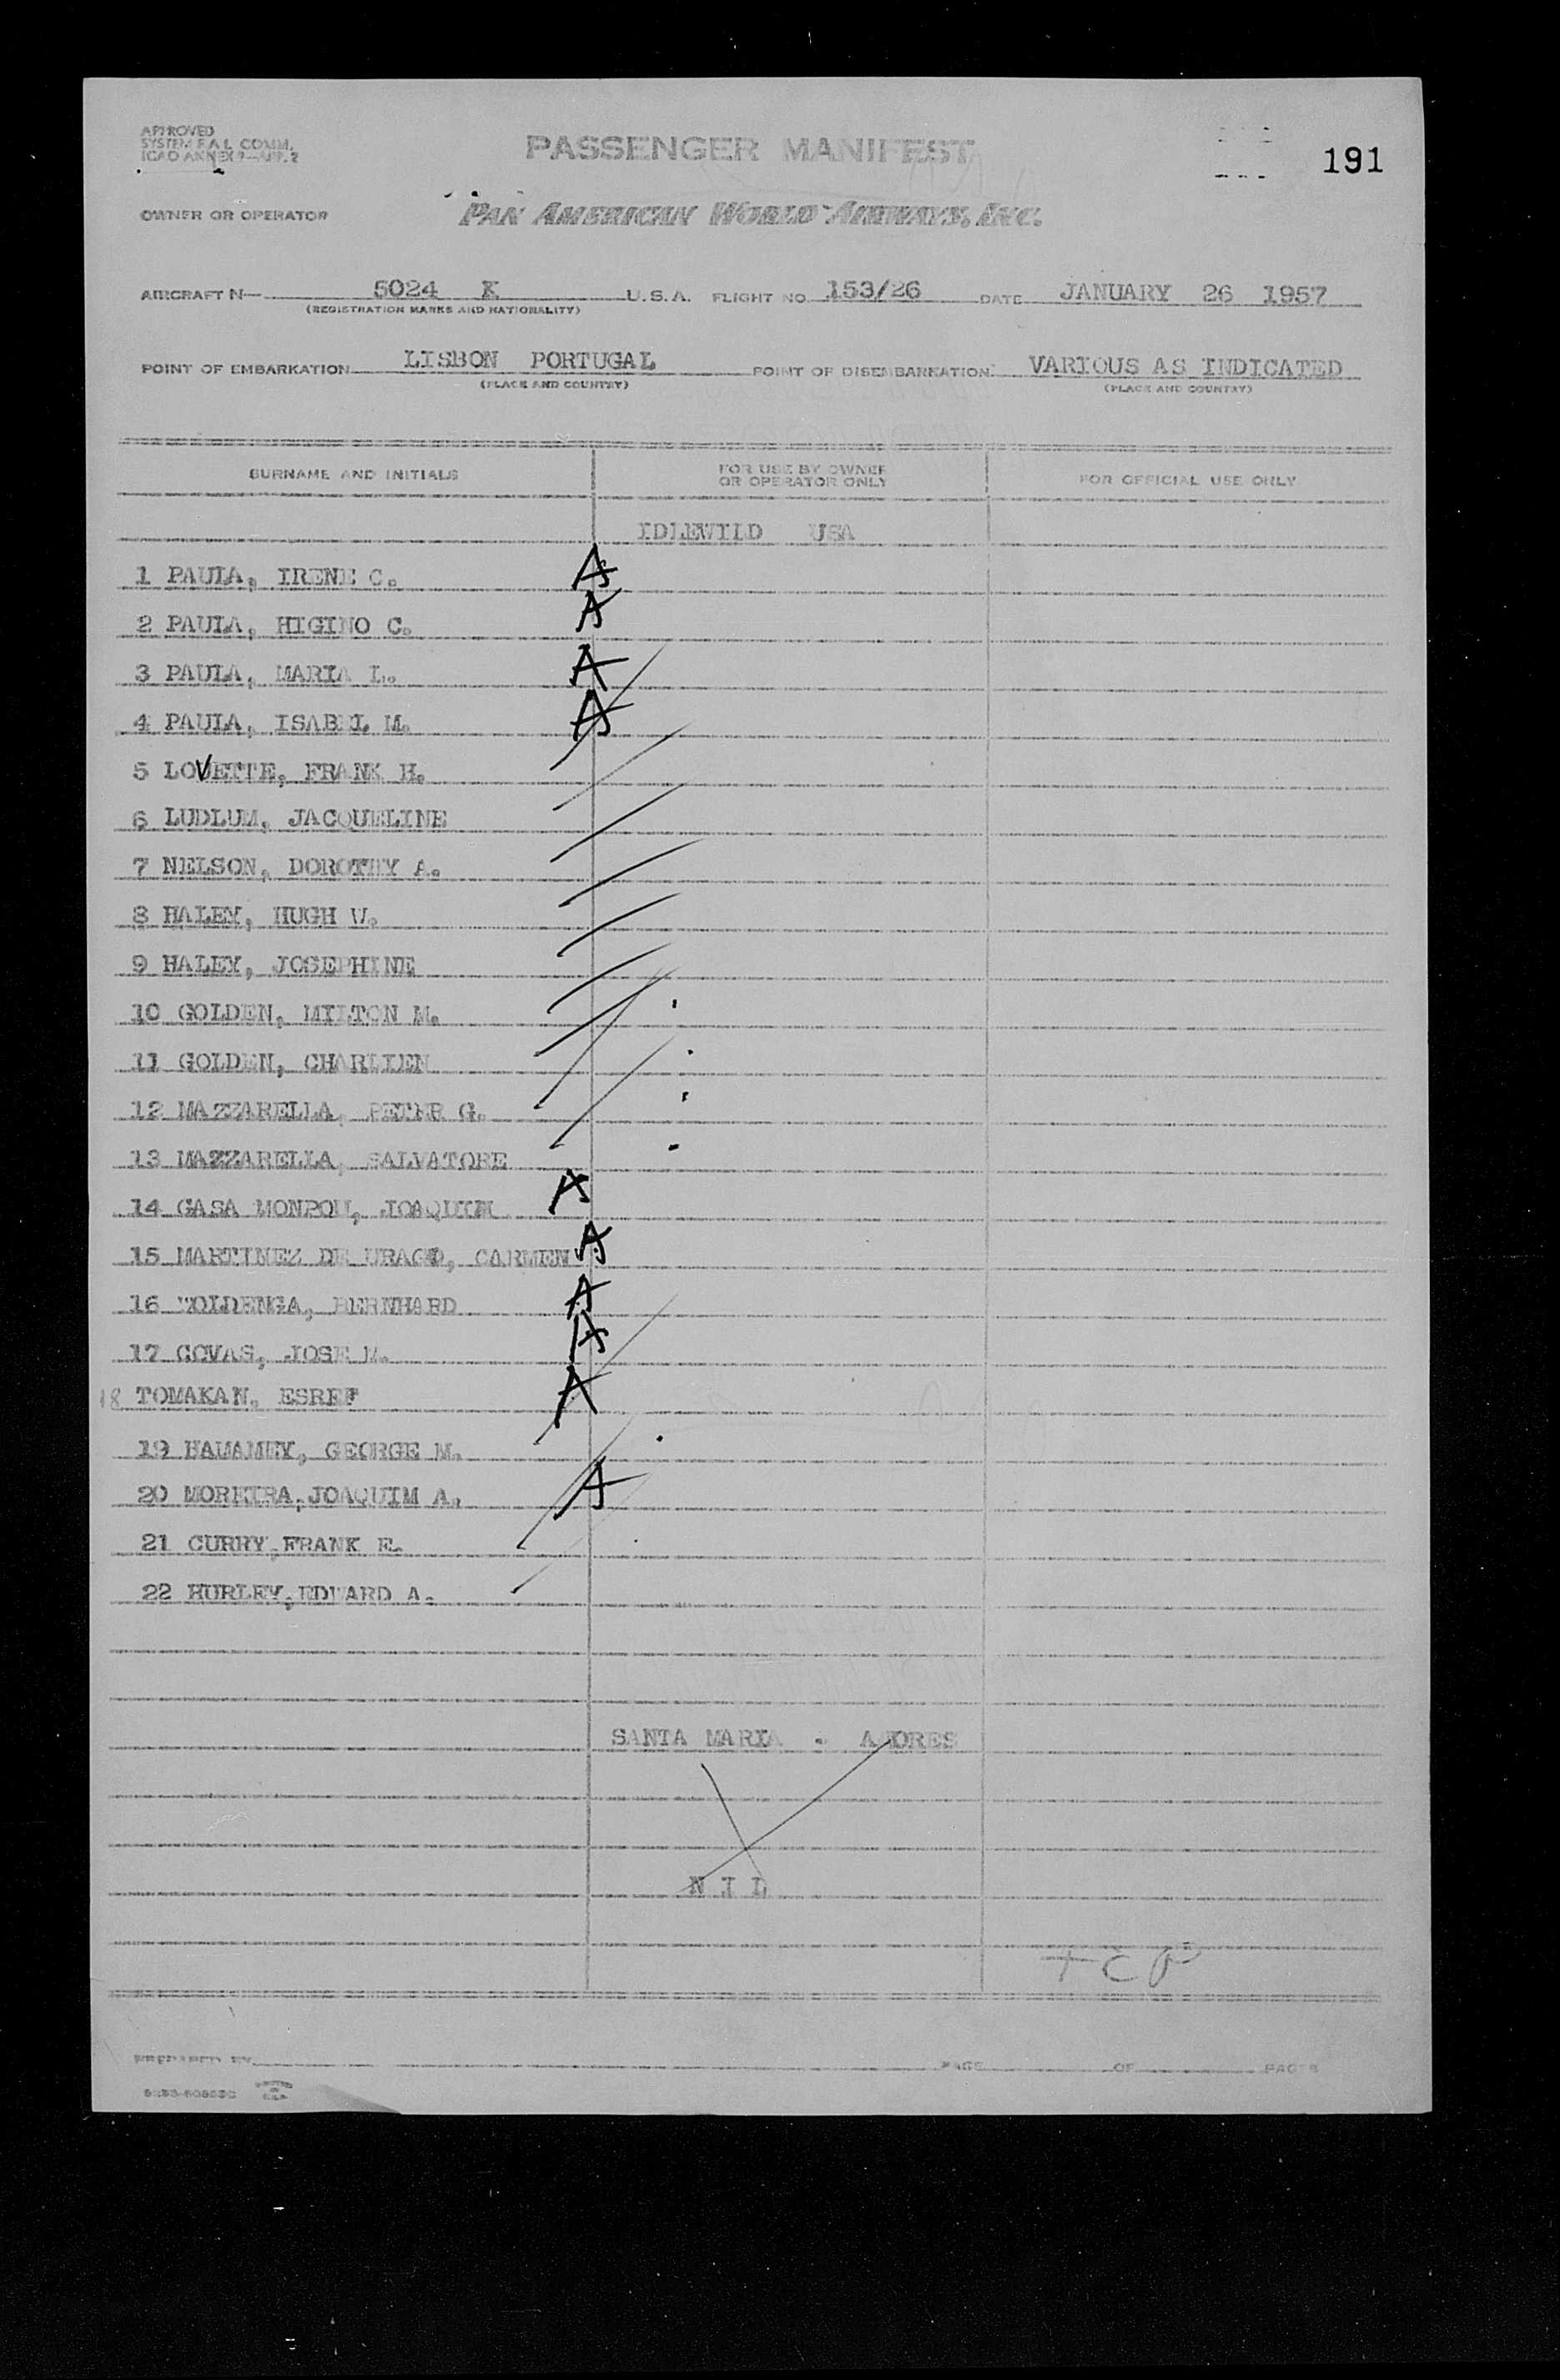 APPROVED
SYSTEM F.A.L. COMM.
ICAO ANNEX 9—APP. 2
PASSENGER MANIFEST
191
OWNER OR OPERATOR
PAN AMERICAN WORLD AIRWAYS, INC.
AIRCRAFT N— 5024 K U.S.A. FLIGHT NO. 153/26 DATE JANUARY 26 1957
(REGISTRATION MARKS AND NATIONALITY)
POINT OF EMBARKATION LISBON PORTUGAL POINT OF DISEMBARKATION: VARIOUS AS INDICATED
(PLACE AND COUNTRY) (PLACE AND COUNTRY)
SURNAME AND INITIALS FOR USE BY OWNER OR OPERATOR ONLY FOR OFFICIAL USE ONLY
IDLEWILD USA
1 PAULA, IRENE C. A
2 PAULA, HIGINO C. A
3 PAULA, MARIA L. A
4 PAULA, ISABEL M. A
5 LOVETTE, FRANK H.
6 LUDLUM, JACQUELINE
7 NELSON, DOROTHY A.
8 HALEY, HUGH W.
9 HALEY, JOSEPHINE
10 GOLDEN, MILTON M.
11 GOLDEN, CHARLIEN
12 MAZZARELLA, PETER G.
13 MAZZARELLA, SALVATORE
14 GASA MONPOU, JOAQUIM A
15 MARTINEZ DE URAGO, CARMEN A
16 WOLDENGA, BERNHARD A
17 COVAS, JOSE M. A
18 TOMAKAN, ESREF A
19 HAUAMEY, GEORGE M.
20 MOREIRA, JOAQUIM A. A
21 CURRY, FRANK E.
22 HURLEY, EDWARD A.
SANTA MARIA - AZORES
N I L
PREPARED BY PAGE OF PAGES